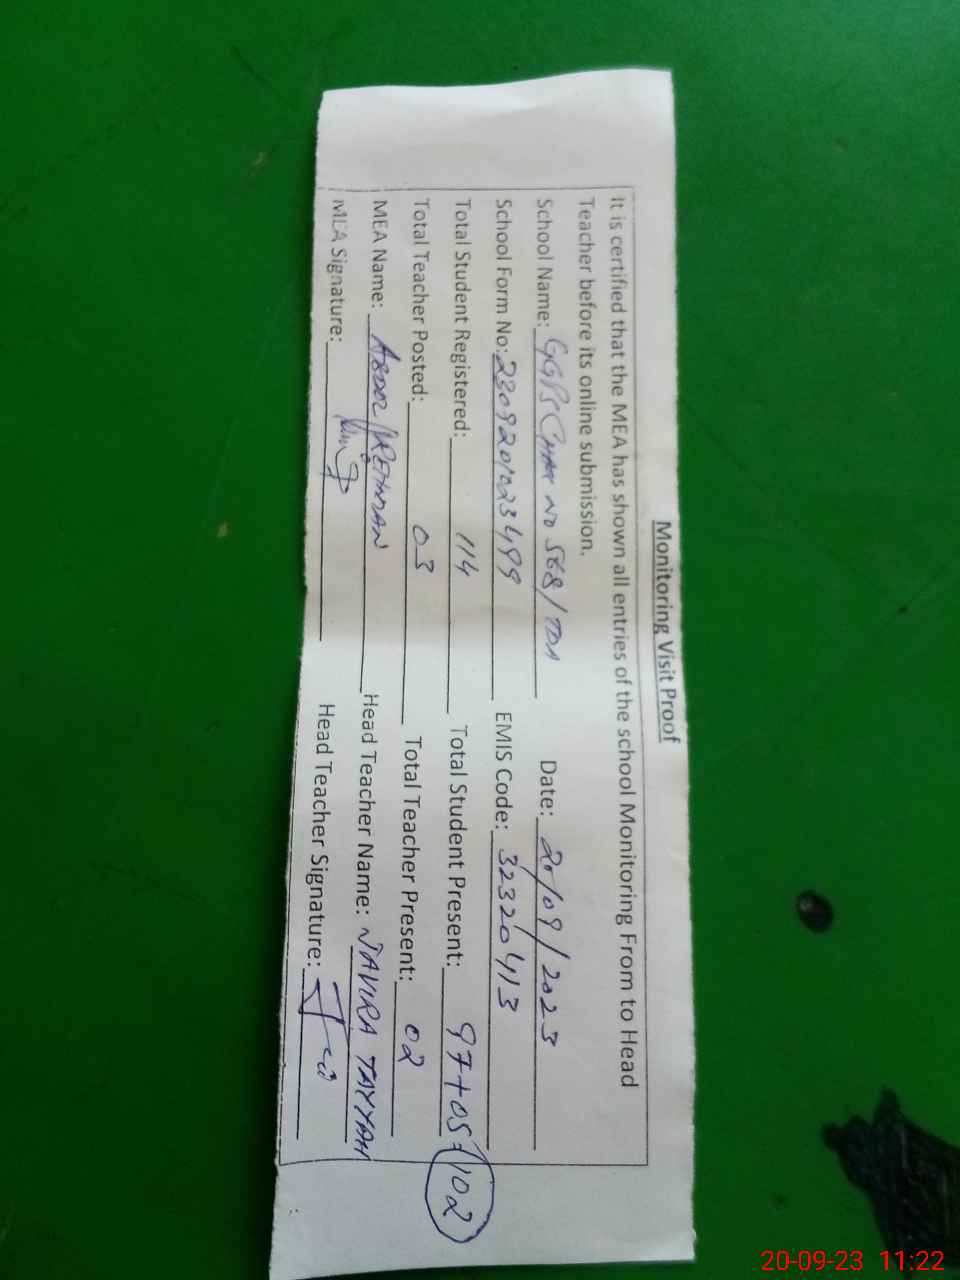 Monitoring Visit Proof
It is certified that the MEA has shown all entries of the school Monitoring From to Head
Teacher before its online submission.
School Name: GGPS CHAK NO 568/TDA Date: 20/09/2023
School Form No: 2309201023499 EMIS Code: 32320413
Total Student Registered: 114 Total Student Present: 97+05=102
Total Teacher Posted: 03 Total Teacher Present: 02
MEA Name: ABDUL REHMAN Head Teacher Name: JAVIRA TAYYAH
MEA Signature: Head Teacher Signature:
20-09-23 11:22